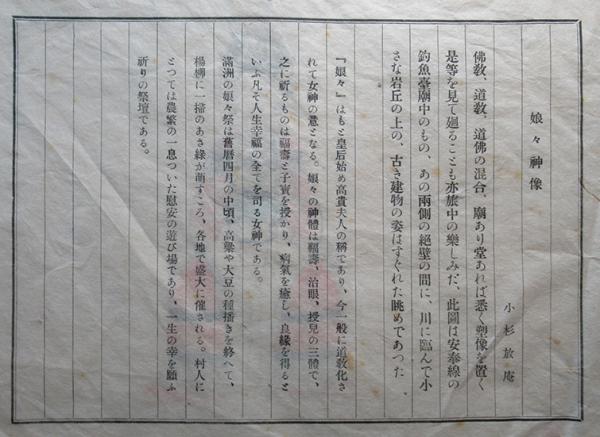 娘々神像
小杉放庵
佛敎、道敎、道佛の混合、廟あり堂あれば悉く塑像を置く
是等を見て廻ることも亦旅中の樂しみだ、此圖は安奉線の
釣魚臺廟中のもの、あの兩側の絶壁の間に、川に臨んで小
さな岩丘の上の、古き建物の姿はすぐれた眺めであつた
『娘々』はもと皇后始め高貴夫人の稱であり、今一般に道敎化さ
れて女神の意となる。娘々の神體は福壽、治眼、授兒の三體で、
之に祈るものは福壽と子寶を授かり、病氣を癒し、良緣を得ると
いふ凡そ人生幸福の全てを司る女神である。
滿洲の娘々祭は舊曆四月の中頃、高粱や大豆の種播きを終へて、
楊柳に一掃のあさ綠が萠すころ、各地で盛大に催される。村人に
とつては農繁の一息ついた慰安の遊び場であり、一生の幸を願ふ
祈りの祭壇である。